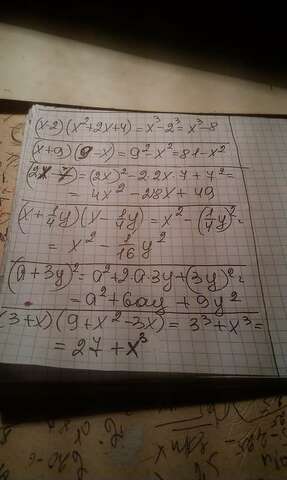 (x-2)(x²+2x+4)=x³-2³=x³-8
(x+9)(9-x)=9²-x²=81-x²
(2x-7)=(2x)²-2·2x·7+7²=
=4x²-28x+49
(x+1/4y)(x-1/4y)=x²-(1/4y)²=
=x²-1/16y²
(a+3y)²=a²+2·a·3y+(3y)²=
=a²+6ay+9y²
(3+x)(9+x²-3x)=3³+x³=
=27+x³